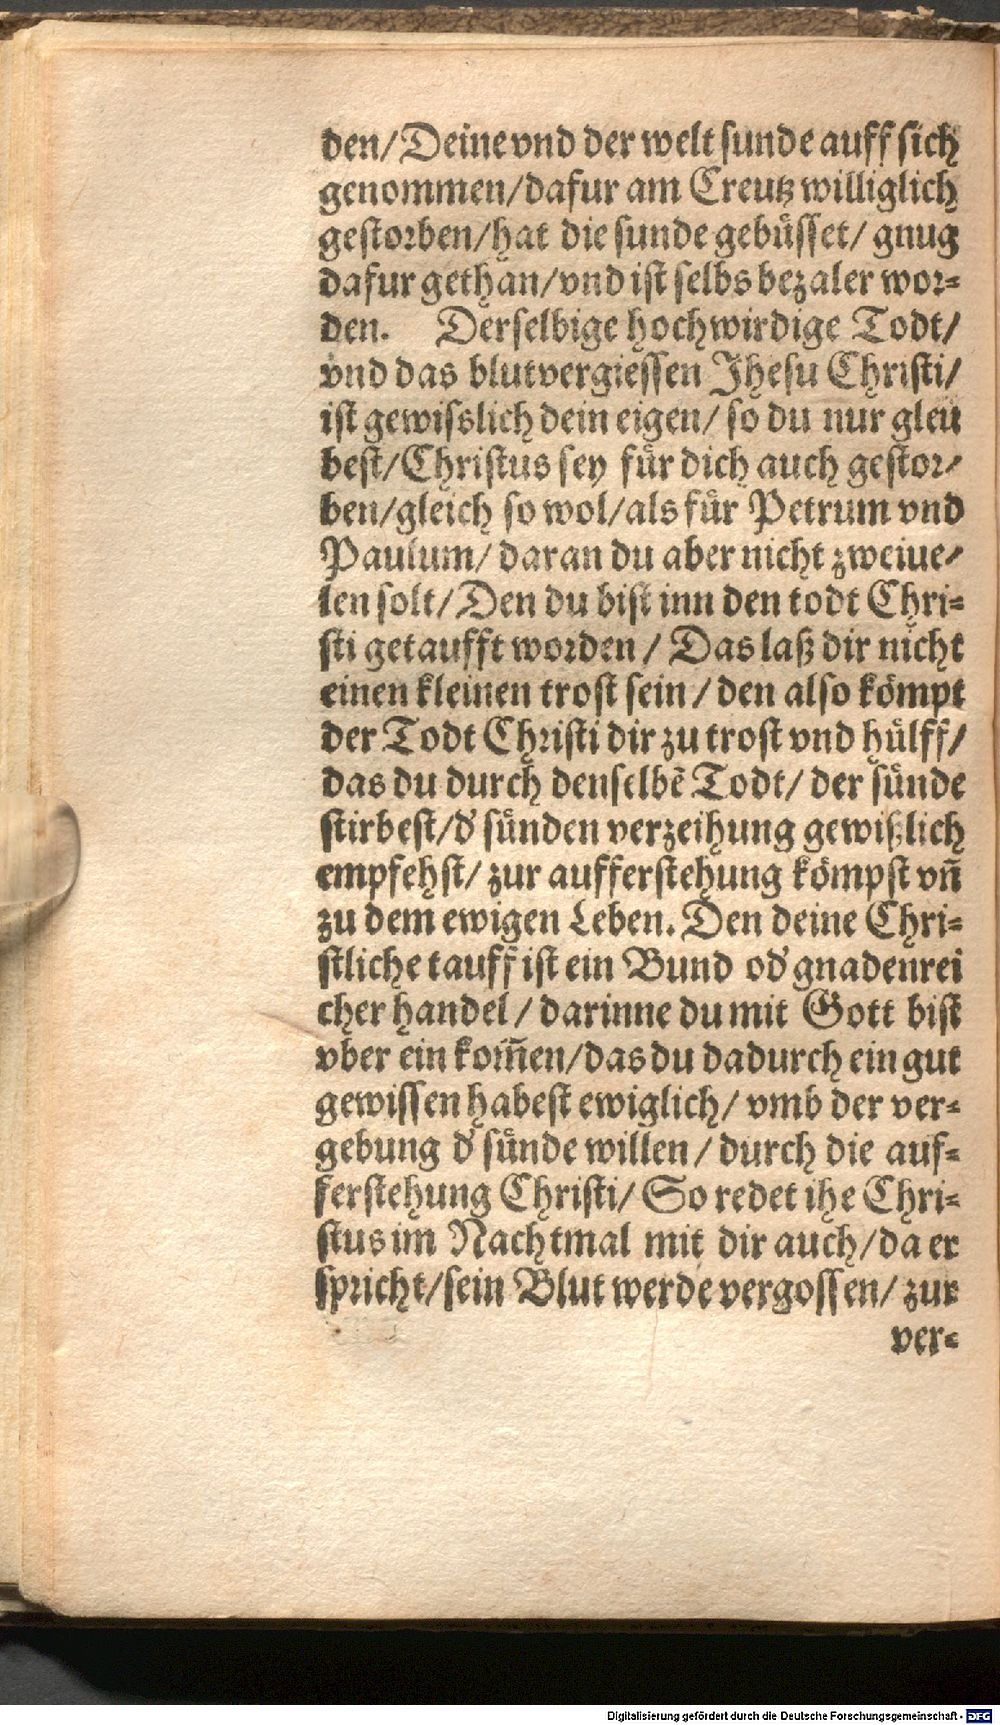 den/ Deine vnd der welt sunde auff sich
genommen/ dafur am Creutz williglich
gestorben/ hat die sunde gebüsset/ gnug
dafur gethan/ vnd ist selbs bezaler wor-
den. Derselbige hochwirdige Todt/
vnd das blutvergiessen Jhesu Christi/
ist gewisslich dein eigen/ so du nur gleu
best/ Christus sey für dich auch gestor-
ben/ gleich so wol/ als für Petrum vnd
Paulum/ daran du aber nicht zweiue-
len solt/ Den du bist inn den todt Chri-
sti getaufft worden/ Das laß dir nicht
einen kleinen trost sein/ den also kömpt
der Todt Christi dir zu trost vnd hülff/
das du durch denselbē Todt/ der sünde
stirbest/ d' sünden verzeihung gewißlich
empfehst/ zur aufferstehung kömpst vñ
zu dem ewigen Leben. Den deine Chri-
stliche tauff ist ein Bund od' gnadenrei
cher handel/ darinne du mit Gott bist
vber ein kom̃en/ das du dadurch ein gut
gewissen habest ewiglich/ vmb der ver-
gebung d' sünde willen/ durch die auf-
ferstehung Christi/ So redet ihe Chri-
stus im Nachtmal mit dir auch/ da er
spricht/ sein Blut werde vergossen/ zur
ver-
Digitalisierung gefördert durch die Deutsche Forschungsgemeinschaft - DFG